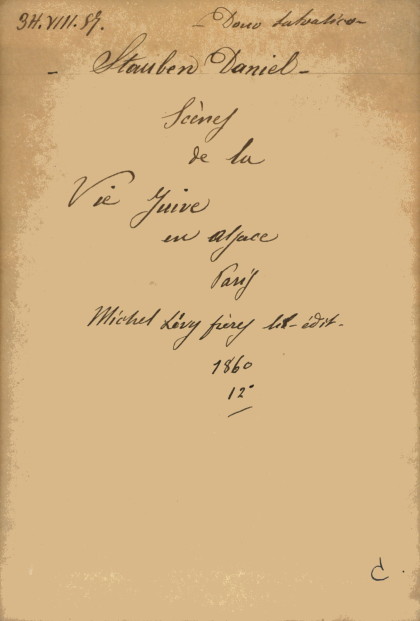 34.VIII.57.
- Dono Salvatico -
- Stauben Daniel -
Scènes
de la
Vie Juive
en alsace
Paris
Michel Lévy frères lib-édit-
1860
12°
C.